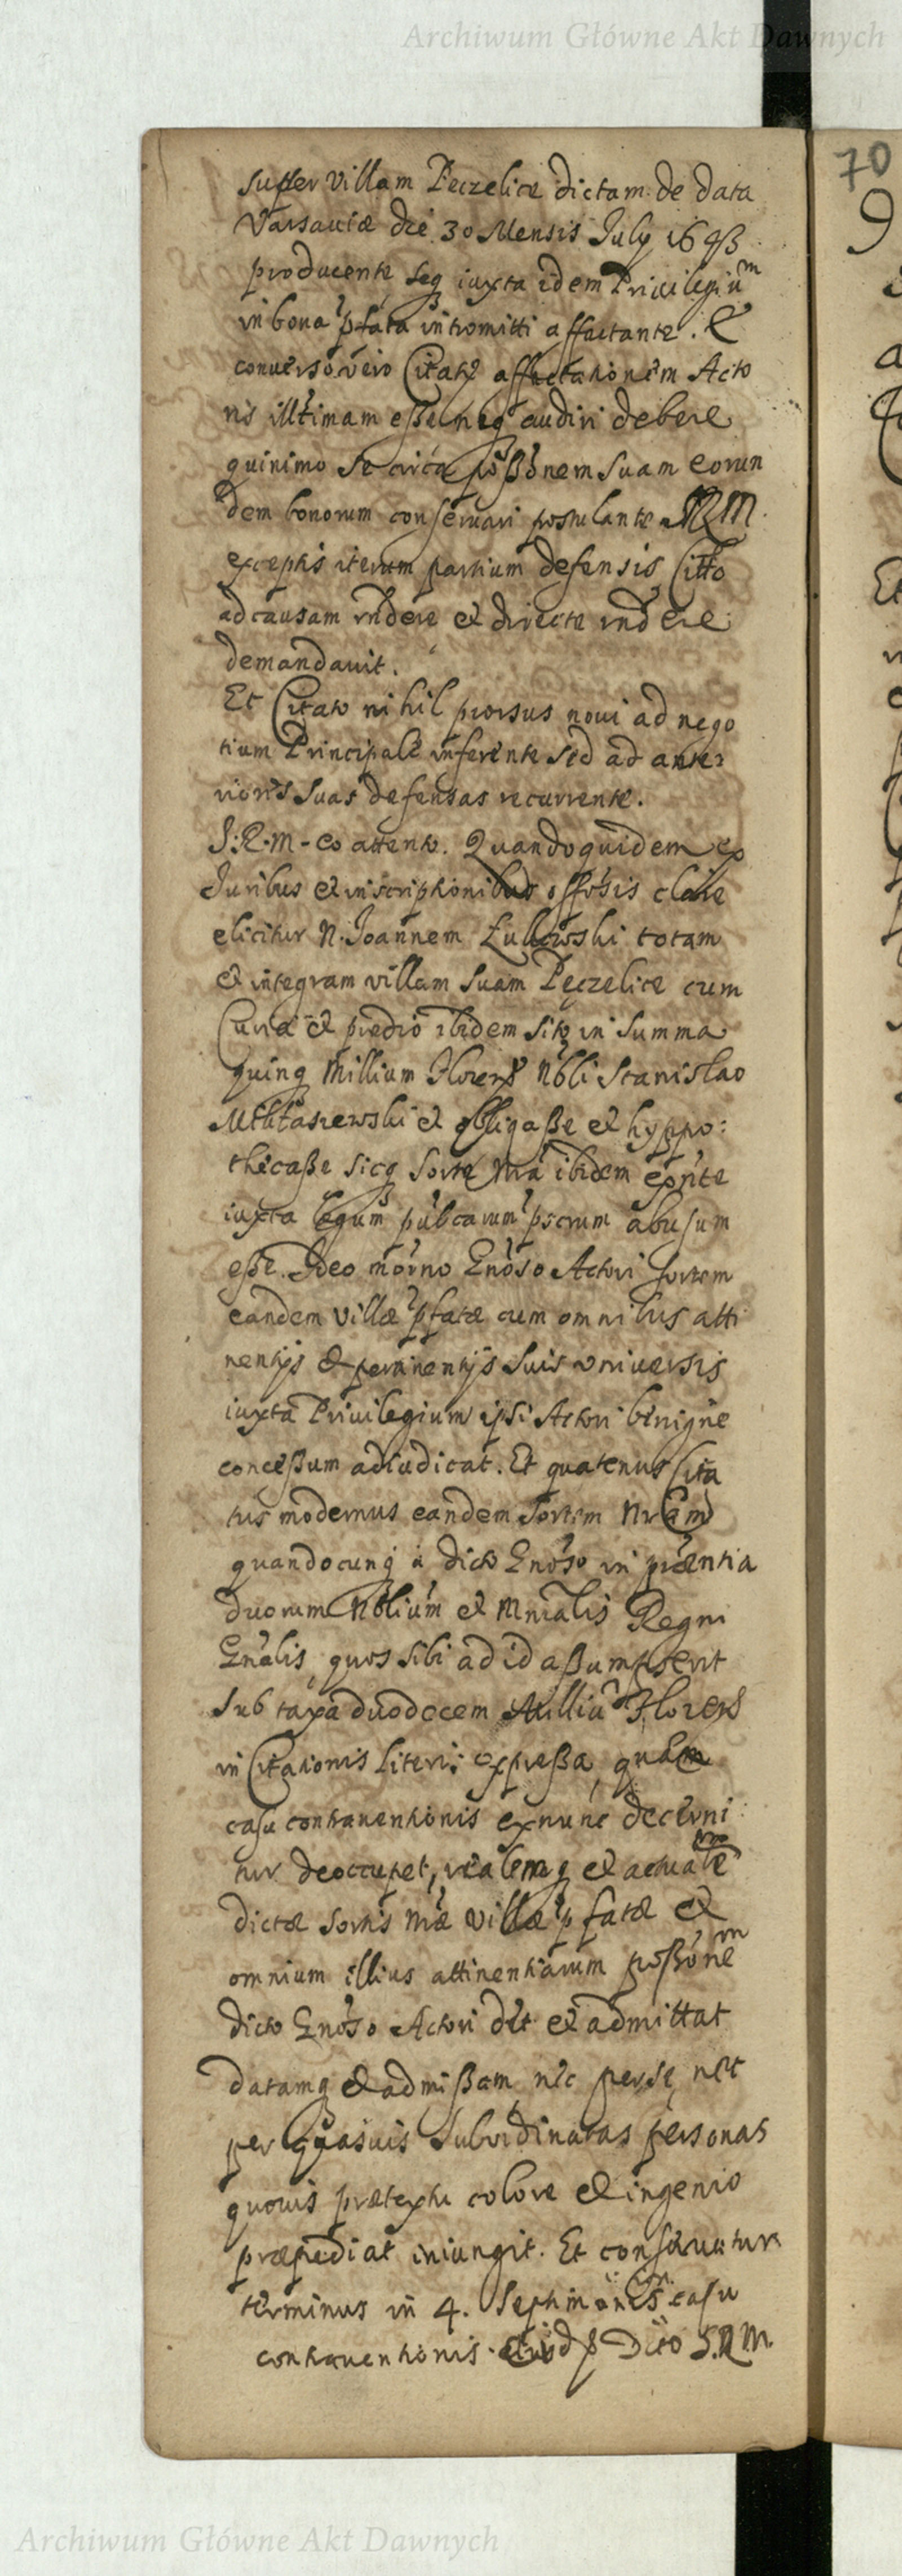 Archiwum Główne Akt Dawnych
70
super Villam Peczelice dictam de data
Varsaviæ die 30 Mensis July 1643
producente seq iuxta idem Privilegiu^m
in bona p̃fata intromitti affectante. &
converso vero Citatq affectationem Acto
ris illtimam esse neq audiri debere
quinimo se circa poßonem suam eorun
dem bonorum conservari postulante SRM
exceptis iterum partium defensis Citto
ad causam rndere et directe rndere
demandavit.
Et Citato nihil prorsus novi ad nego
tium Principale inferente sed ad ante
riores suas defensas recurrente.
S:R:M- eo attento. Quandoquidem ex
Juribus et inscriptionibus clare
elicitur N. Joannem totam
et integram villam suam Pęczelice cum
Curia et prædio ibidem sito in summa
quinq Millium Floren Nbli Stanislao
et obligaße et hyppo:
thecaße sicq sorte nra ibidem
iuxta legum publcarum pscrum abusum
eße. Ideo Gnoso Actori sortem
eandem villæ p̃fatæ cum omnibus atti
nentijs & pertinentijs suis universis
iuxta Privilegium ipsi Actori benigne
conceßum adiudicat. Et quatenus Cita
tus modernus eandem sortem nram
quandocunq a dicto Gnoso in præntia
duorum Nblium et Mnralis Regni
Gnalis, quos sibi ad id aßumpserit
sub taxa duodecem Milliu Floren
in Citationis literis expreßa, quam
casu contraventionis exnunc decerni
tur deoccupet, realemq et actuale^m
dictæ sortis nræ villæ p̃fatæ et
omnium illius attinentiarum poßone^m
dicto Gnoso Actori det et admittat
datamq et admißam nec per se, nec
per quasvis subordinatas personas
quovis prætextu colore et ingenio
præpediat iniungit. Et conservatur
terminus in 4. Septimanis casu
contraventionis. Dcto S.R.M.
Archiwum Główne Akt Dawnych